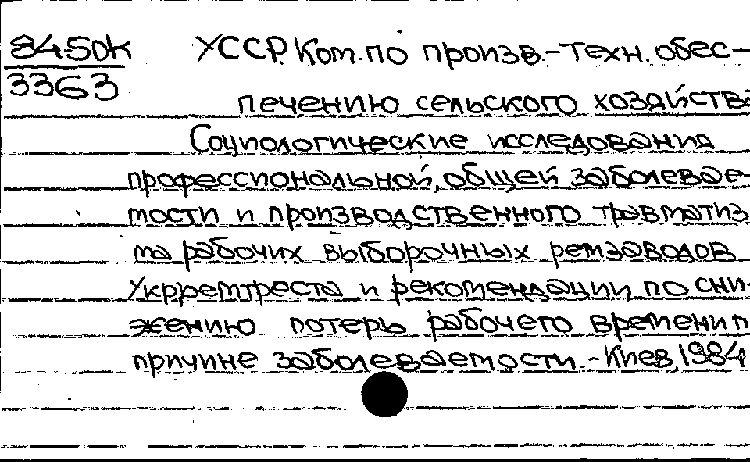 8450к УССР. Ком. по произв.-техн. обес-
3363
печению сельского хозяйства
Социологические исследования
профессиональной, общей заболевае-
мости и производственного травматиз
ма рабочих выборочных ремзаводов
Укрремтреста и рекомендации по сни-
жению потерь рабочего времени п
причине заболеваемости. - Киев 1984